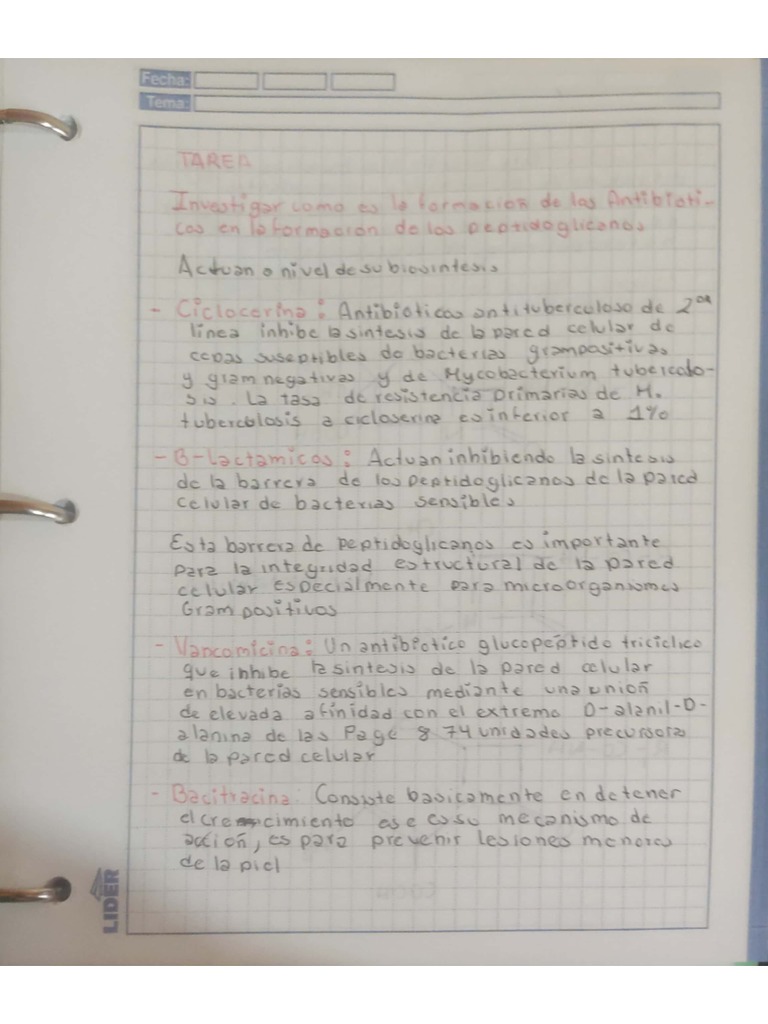 Fecha:
Tema:
TAREA
Investigar como es la formacion de las Antibioti-
cos en la formacion de los peptidoglicanos
Actuan a nivel de su biosintesis
- Ciclocerina: Antibioticos antituberculoso de 2da
linea inhibe la sintesis de la pared celular de
cepas suseptibles de bacterias grampositivas
y gram negativas y de Mycobacterium tubercolo-
sis. La tasa de resistencia primarias de M.
tubercolosis a cicloserina es inferior a 1%
- B-Lactamicos: Actuan inhibiendo la sintesis
de la barrera de los peptidoglicanos de la pared
celular de bacterias sensibles
Esta barrera de peptidoglicanos es importante
para la integridad estructural de la pared
celular especialmente para microorganismos
Gram positivos
- Vancomicina: Un antibiotico glucopeptido triciclico
que inhibe la sintesis de la pared celular
en bacterias sensibles mediante una union
de elevada afinidad con el extremo D-alanil-D-
alanina de las Page 874 unidades precursora
de la pared celular
- Bacitracina: Consiste basicamente en detener
el crecimiento ese es su mecanismo de
acción, es para prevenir lesiones menores
de la piel
LIDER